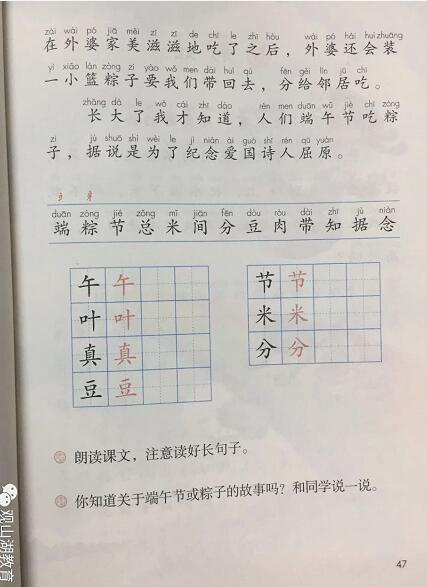 zài wài pó jiā měi zī zī de chī le zhī hòu wài pó hái huì zhuāng
在外婆家美滋滋地吃了之后，外婆还会装
yì xiǎo lán zòng zi yào wǒ men dài huí qù fēn gěi lín jū chī
一小篮粽子要我们带回去，分给邻居吃。
zhǎng dà le wǒ cái zhī dào rén men duān wǔ jié chī zòng
长大了我才知道，人们端午节吃粽
zi jù shuō shì wèi le jì niàn ài guó shī rén qū yuán
子，据说是为了纪念爱国诗人屈原。
duān zòng jié zǒng mǐ jiān fēn dòu ròu dài zhī jù niàn
端粽节总米间分豆肉带知据念
午午
叶叶
真真
豆豆
节节
米米
分分
朗读课文，注意读好长句子。
你知道关于端午节或粽子的故事吗？和同学说一说。
47
观山湖教育